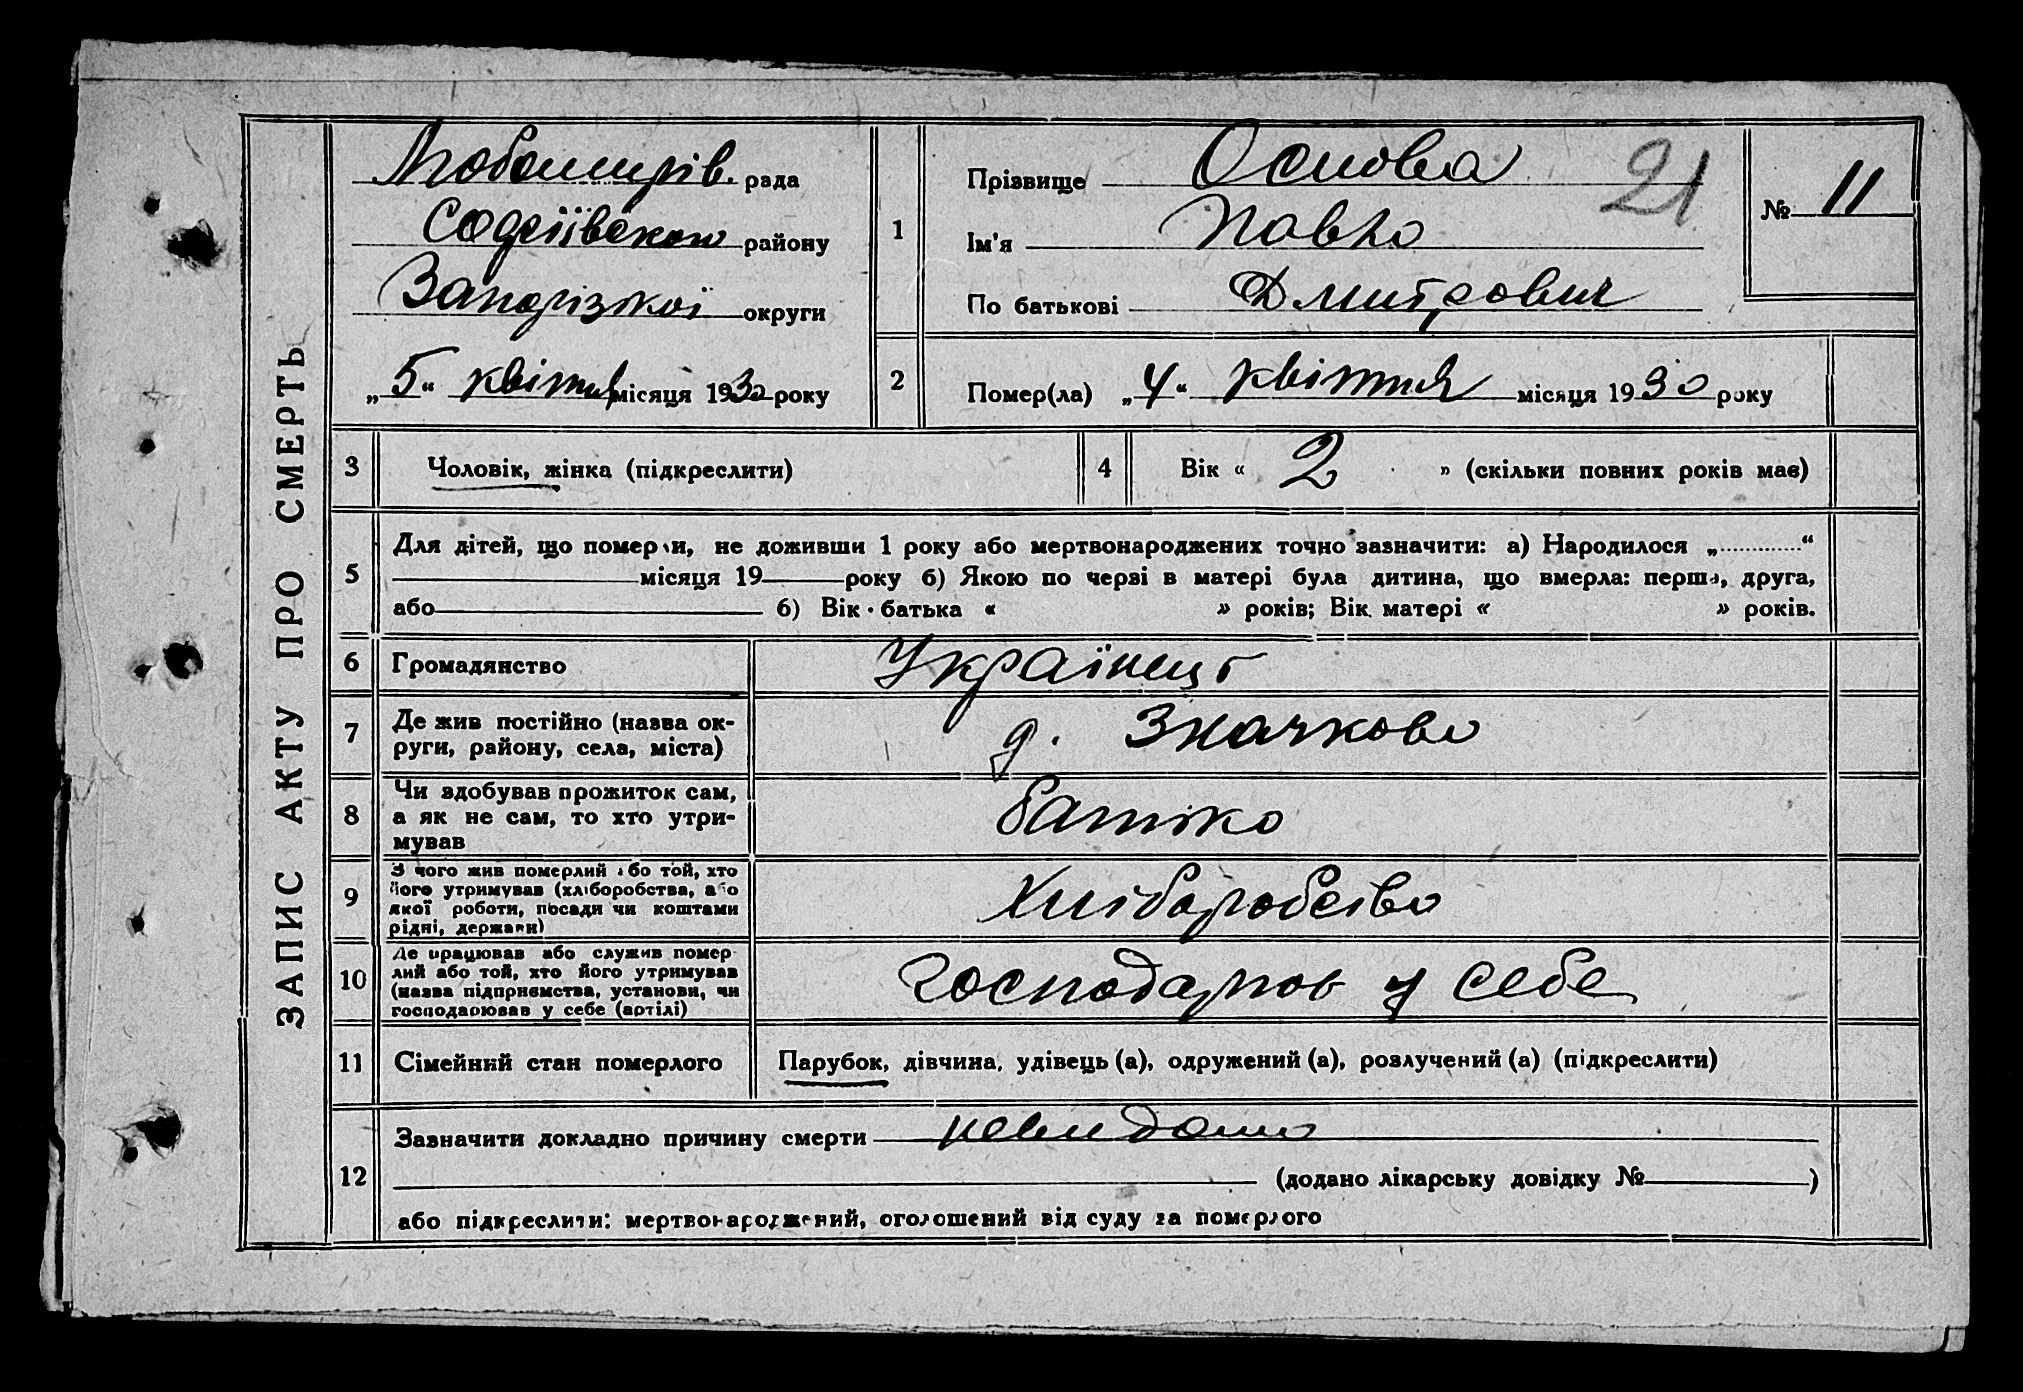 ЗАПИС АКТУ ПРО СМЕРТЬ
Любомирів. рада
Софіївського району
Запорізької округи
„5“ квітня місяця 1930 року
1
Прізвище Основа
21
Ім'я Павло
По батькові Дмитрович
№ 11
2
Помер(ла) „4“ квітня місяця 1930 року
3
Чоловік, жінка (підкреслити)
4
Вік « 2 » (скільки повних років має)
5
Для дітей, що померли, не доживши 1 року або мертвонароджених точно зазначити: а) Народилося „............“
місяця 19 року б) Якою по черзі в матері була дитина, що вмерла: перша, друга,
або б) Вік батька « » років; Вік матері « » років.
6
Громадянство
Українець
7
Де жив постійно (назва ок-
руги, району, села, міста)
д. Значково
8
Чи здобував прожиток сам,
а як не сам, то хто утри-
мував
батько
9
З чого жив померлий або той, хто
його утримував (хліборобства, або
якої роботи, посади чи коштами
рідні, держави)
Хліборобство
10
Де працював або служив помер-
лий або той, хто його утримував
(назва підприємства, установи, чи
господарював у себе (артілі)
господарюв у себе
11
Сімейний стан померлого
Парубок, дівчина, удівець (а), одружений (а), розлучений (а) (підкреслити)
12
Зазначити докладно причину смерти невидомо
(додано лікарську довідку № )
або підкреслити: мертвонароджений, оголошений від суду за померлого